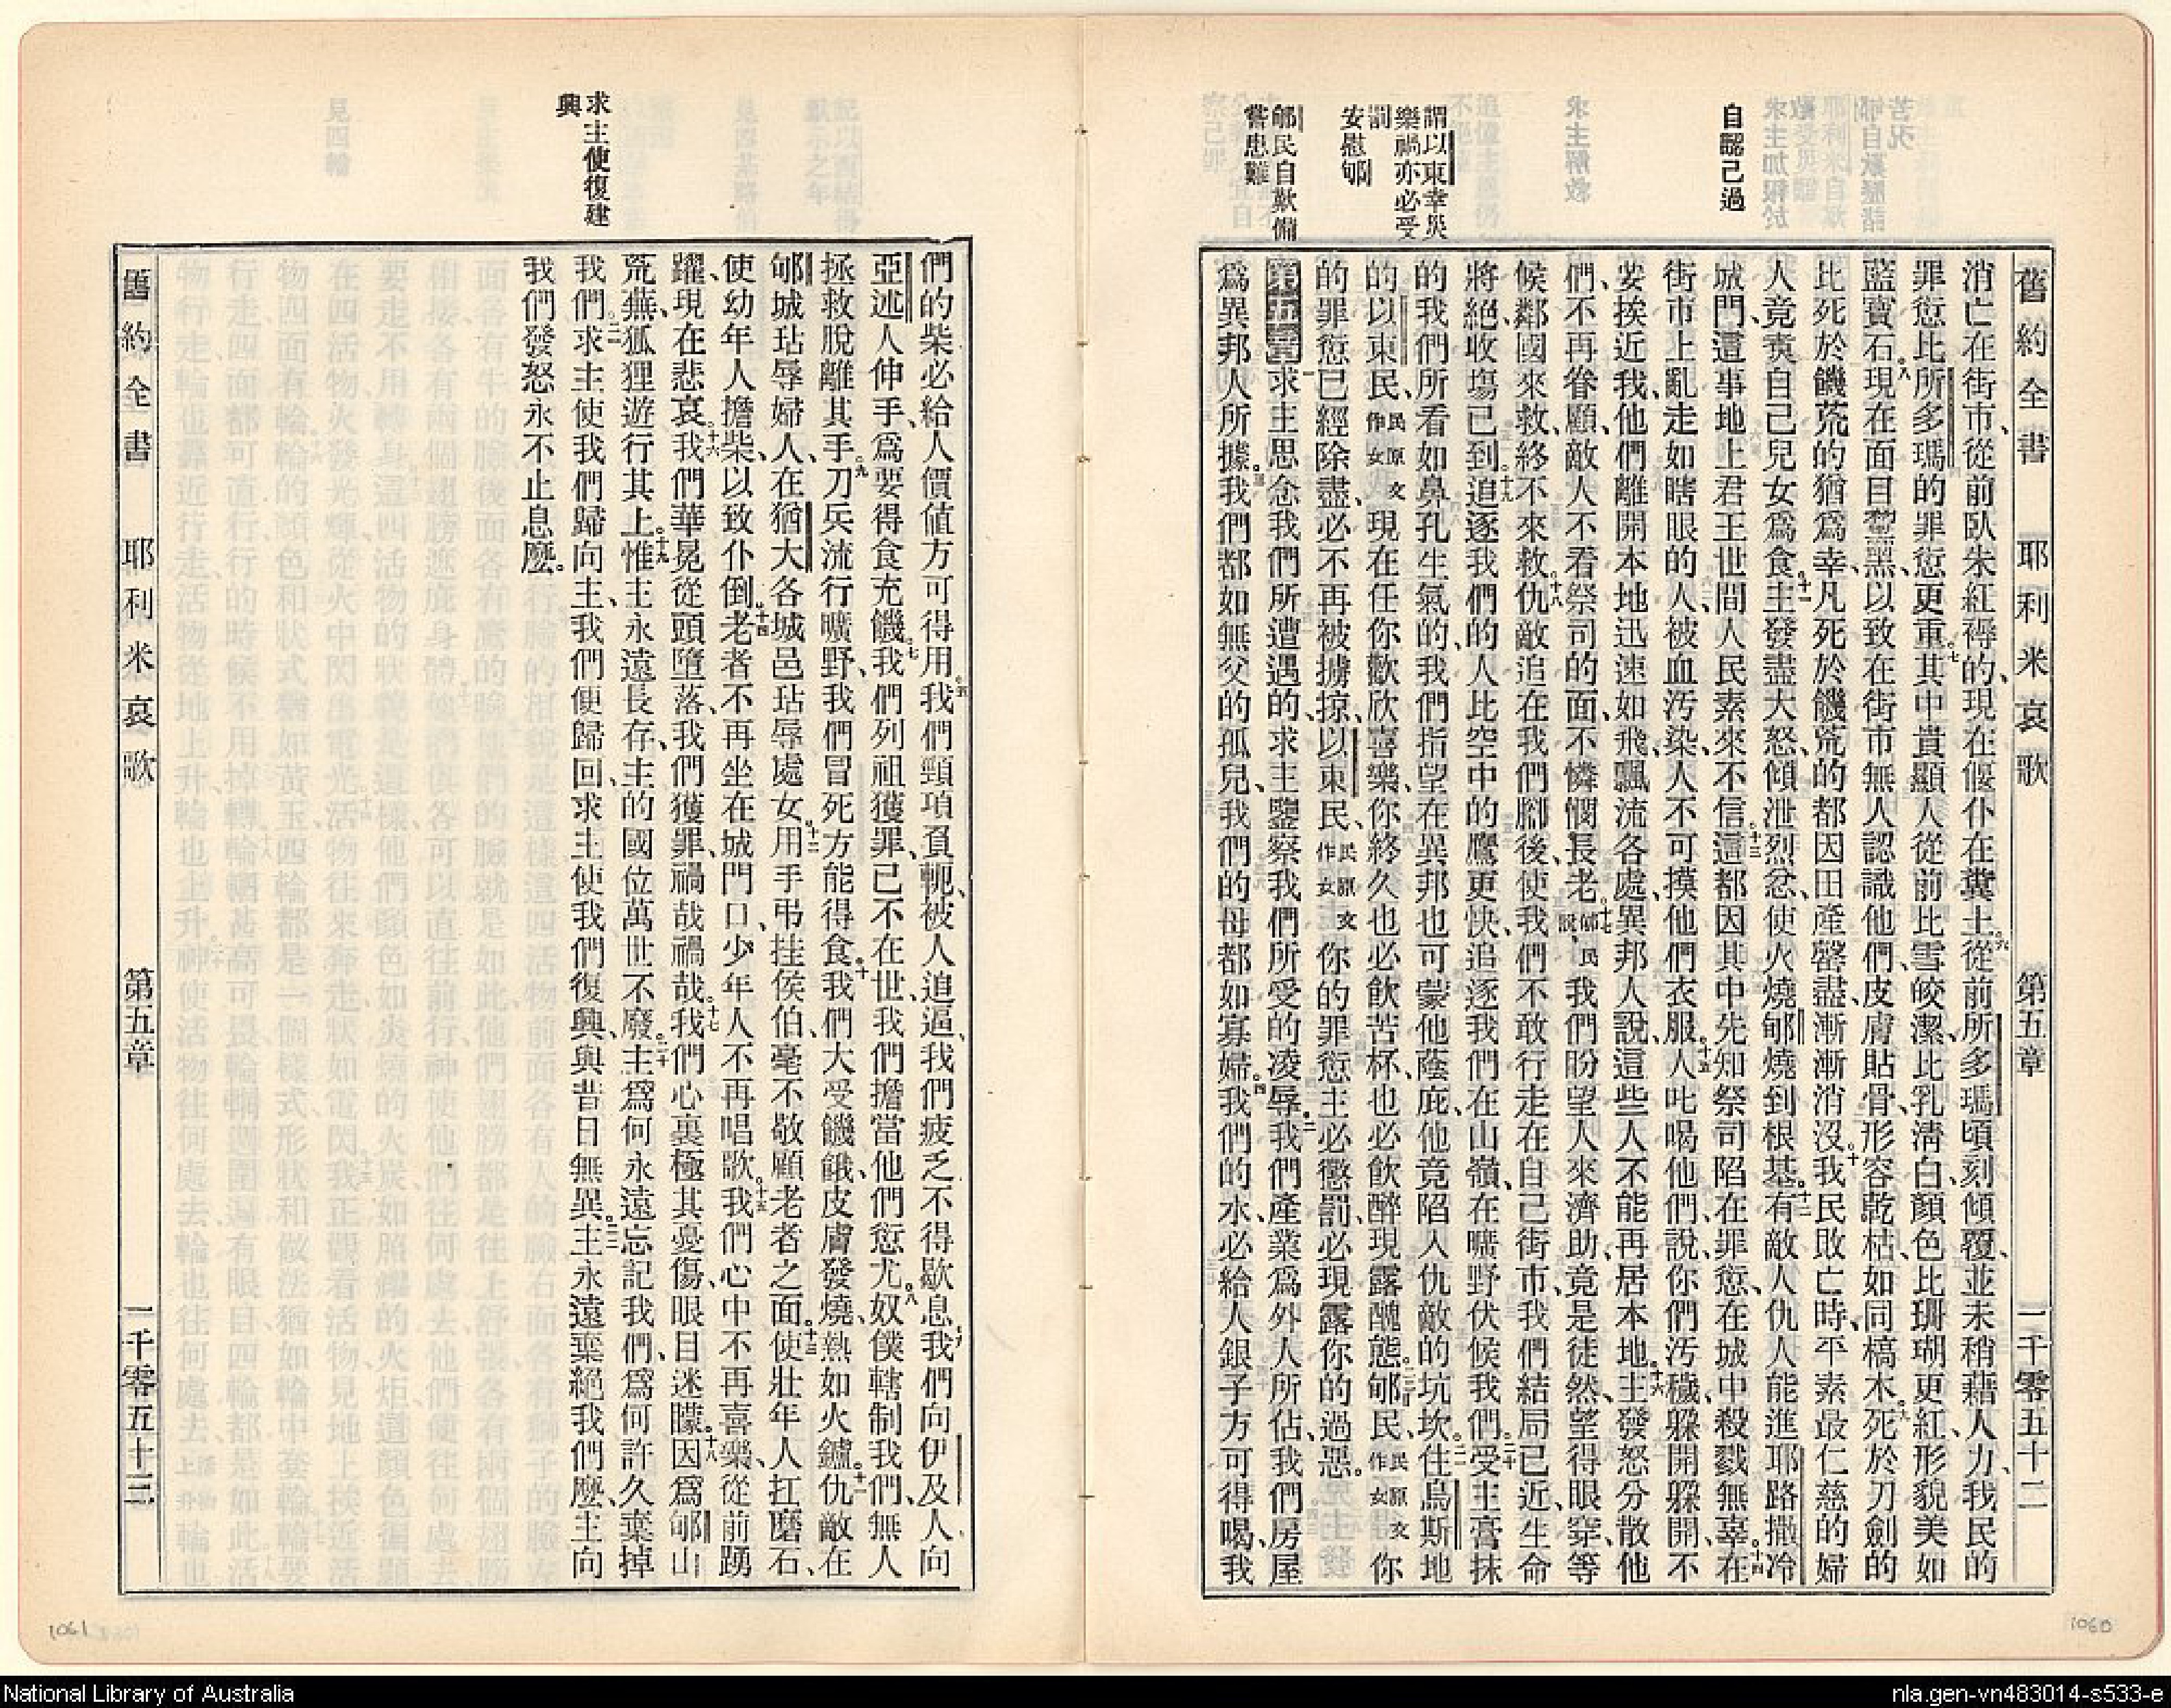 舊約全書 耶利米哀歌 第五章 一千零五十二
自認己過
謂以東幸災
樂禍亦必受
罰
安慰郇
郇民自歎備
嘗患難
消亡在街市、從前臥朱紅褥的、現在偃仆在糞土。六從前所多瑪頃刻傾覆、並未稍藉人力、我民的
罪愆比所多瑪的罪愆更重。七其中貴顯人從前比雪皎潔、比乳清白、顏色比珊瑚更紅、形貌美如
藍寶石。八現在面目黧黑、以致在街市無人認識他們、皮膚貼骨、形容乾枯、如同槁木。九死於刀劍的
比死於饑荒的猶爲幸、凡死於饑荒的、都因田產罄盡、漸漸消沒。十我民敗亡時、平素最仁慈的婦
人、竟煑自己兒女爲食。十一主發盡大怒、傾泄烈忿、使火燒郇燒到根基。十二有敵人仇人能進耶路撒冷
城門、這事地上君王世間人民素來不信。十三這都因其中先知祭司陷在罪愆、在城中殺戮無辜。十四在
街市上亂走如瞎眼的人、被血汚染、人不可摸他們衣服。十五人叱喝他們、說、你們汚穢、躱開躱開、不
要挨近我、他們離開本地迅速如飛、飄流各處、異邦人說、這些人不能再居本地。十六主發怒分散他
們、不再眷顧、敵人不看祭司的面、不憐憫長老。十七郇民說、我們盼望人來濟助、竟是徒然、望得眼穿、等
候鄰國來救、終不來救。十八仇敵追在我們腳後、使我們不敢行走在自己街市、我們結局已近、生命
將絕、收塲已到。十九追逐我們的人、比空中的鷹更快、追逐我們在山嶺、在曠野伏候我們。二十受主膏抹
的、我們所看如鼻孔生氣的、我們指望在異邦也可蒙他蔭庇、他竟陷入仇敵的坑坎。二一住烏斯地
的以東民、民原文作女現在任你歡欣喜樂、你終久也必飲苦杯、也必飲醉現露醜態。二二郇民、民原文作女你
的罪愆已經除盡、必不再被擄掠、以東民、民原文作女你的罪愆主必懲罰、必現露你的過惡。
第五章一求主思念我們所遭遇的、求主鑒察我們所受的凌辱。二我們產業爲外人所佔、我們房屋
爲異邦人所據。三我們都如無父的孤兒、我們的母都如寡婦。四我們的水、必給人銀子方可得喝、我
求主使復建
興
們的柴必給人價值方可得用。五我們頸項負軛、被人追逼、我們疲乏不得歇息。六我們向伊及人、向
亞述人伸手、爲要得食充饑。七我們列祖獲罪、已不在世、我們擔當他們愆尤。八奴僕轄制我們、無人
拯救脫離其手。九刀兵流行曠野、我們冒死方能得食。十我們大受饑餓、皮膚發燒、熱如火鑪。十一仇敵在
郇城玷辱婦人、在猶大各城邑玷辱處女。十二用手弔挂侯伯、毫不敬顧老者之面。十三使壯年人扛磨石、
使幼年人擔柴、以致仆倒。十四老者不再坐在城門口、少年人不再唱歌。十五我們心中不再喜樂、從前踴
躍、現在悲哀。十六我們華冕從頭墮落、我們獲罪、禍哉禍哉。十七我們心裏極其憂傷、眼目迷矇。十八因爲郇山
荒蕪、狐狸遊行其上。十九惟主永遠長存、主的國位萬世不廢。二十主爲何永遠忘記我們、爲何許久棄掉
我們。二一求主使我們歸向主、我們便歸回、求主使我們復興、與昔日無異。二二主永遠棄絕我們麽、主向
我們發怒永不止息麽。
舊約全書 耶利米哀歌 第五章 一千零五十三
1061
1060
National Library of Australia
nla.gen-vn483014-s533-e